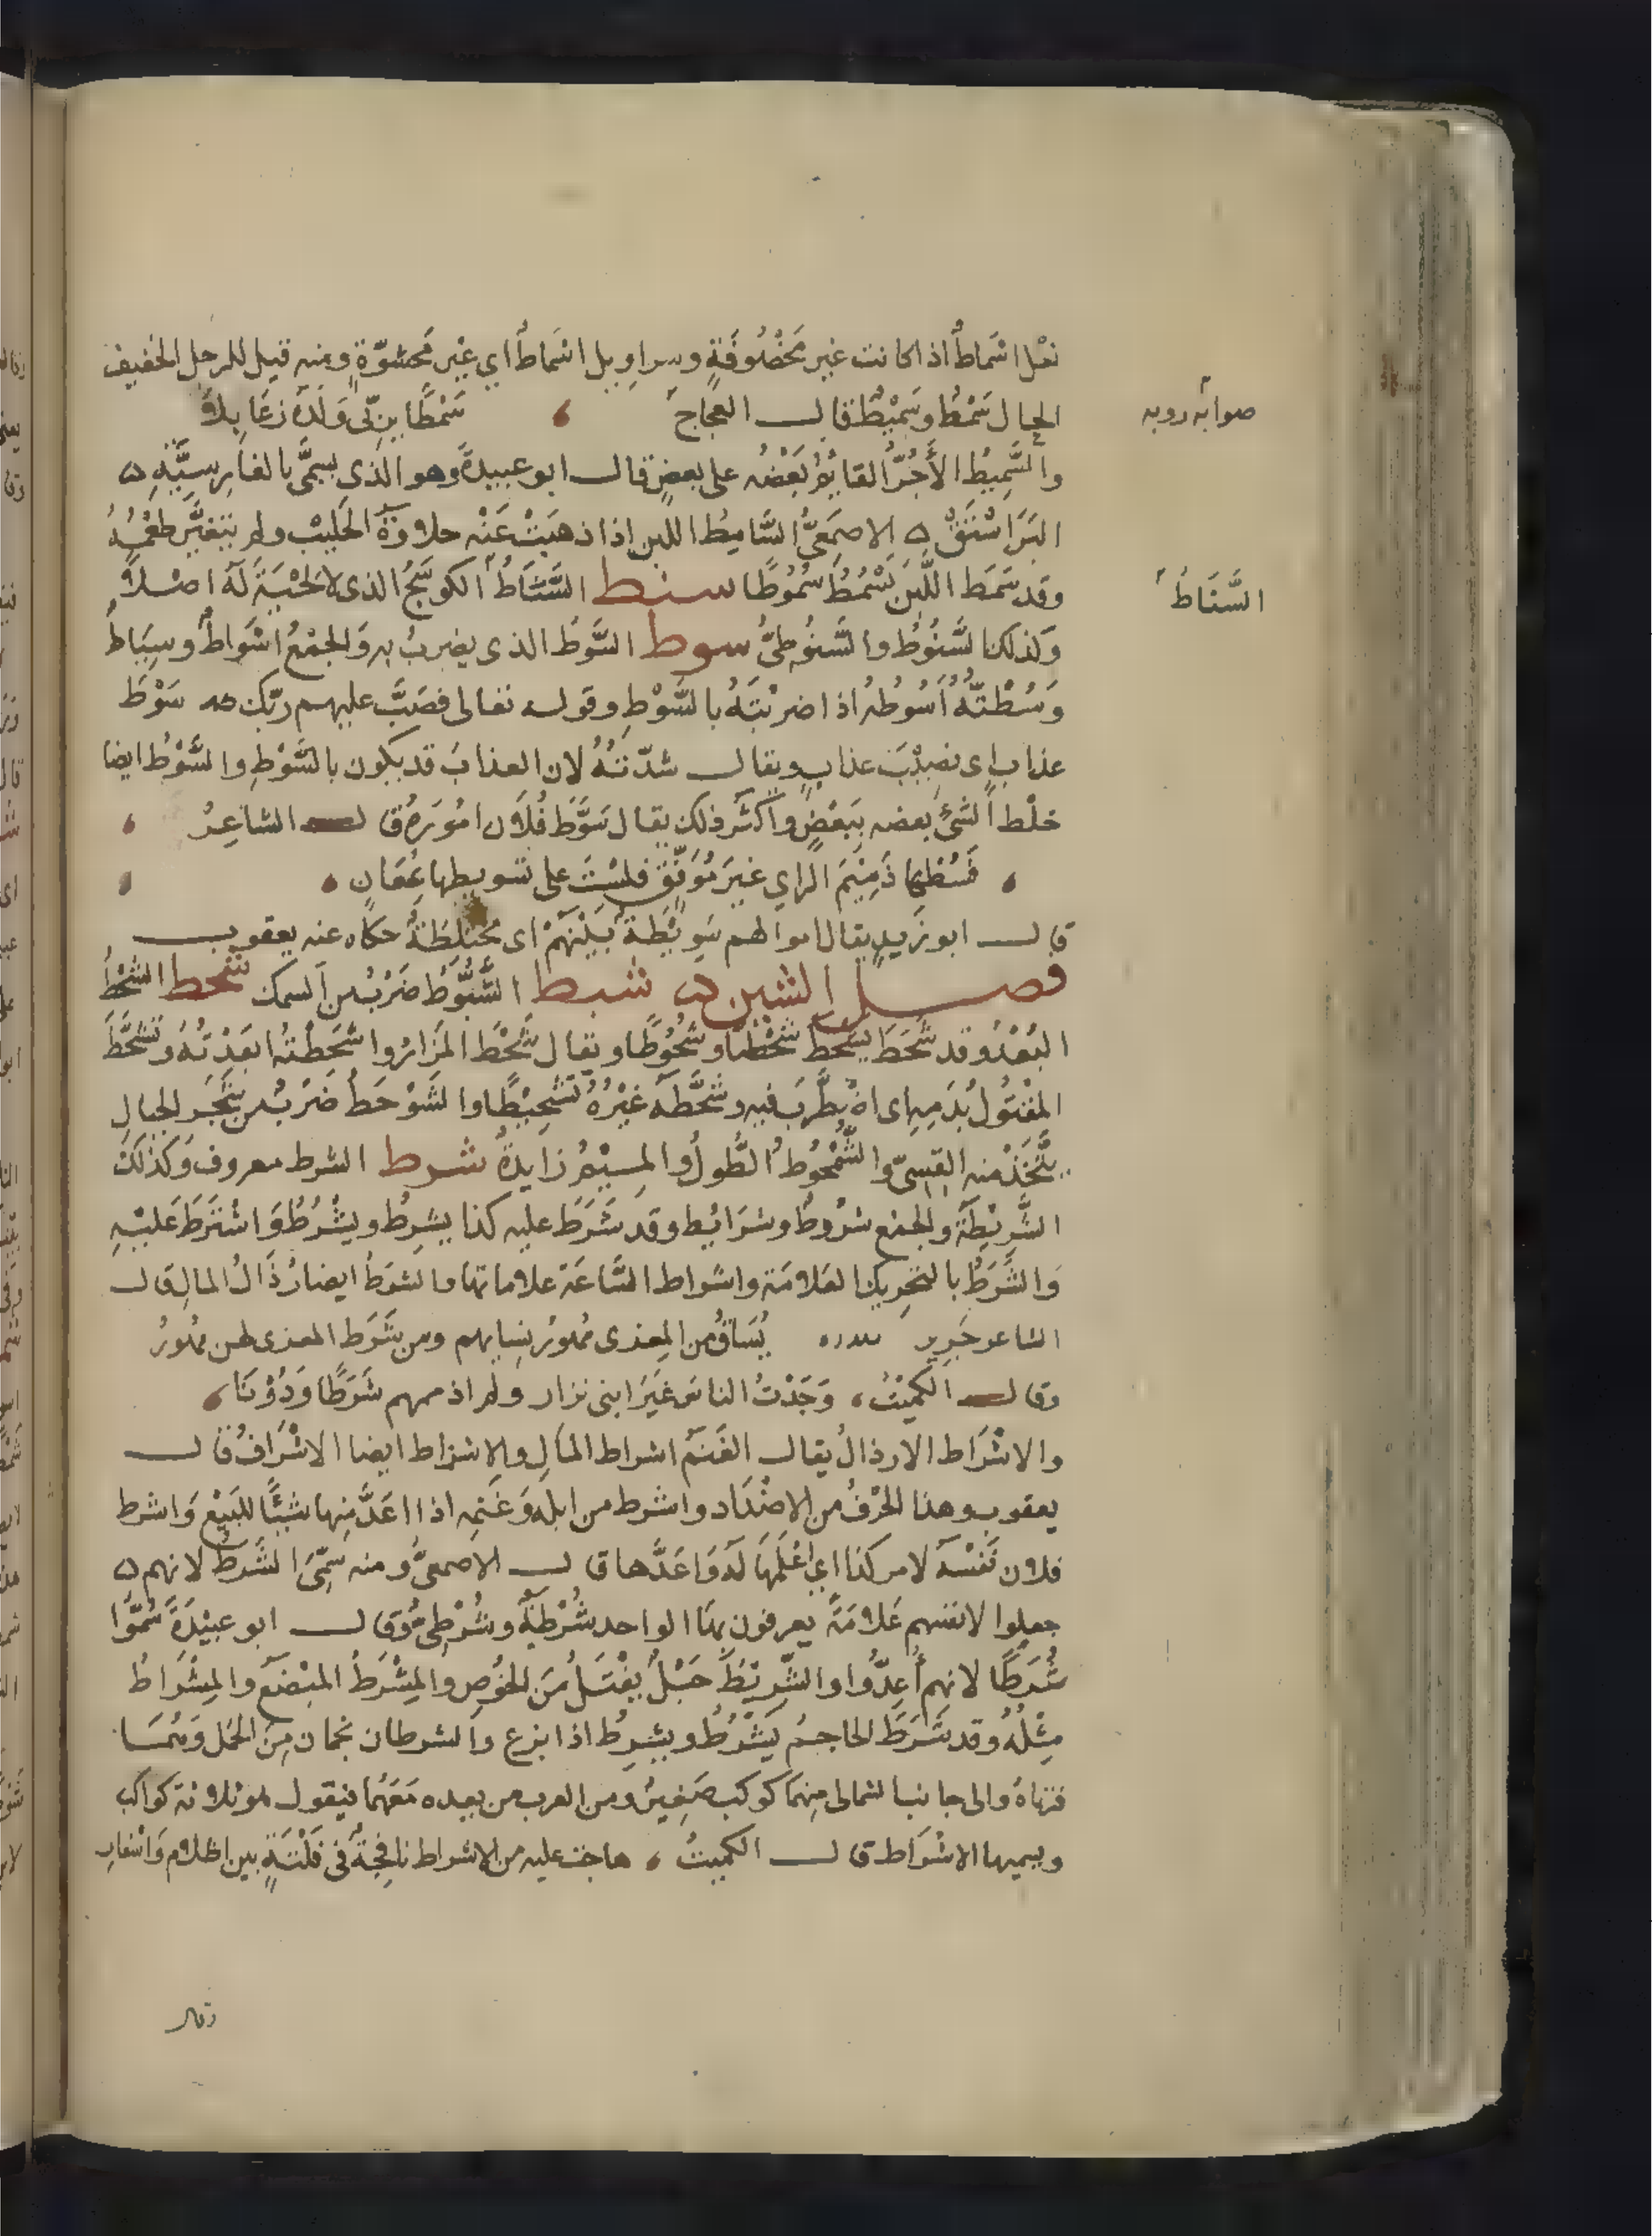 نعل اسماط اذا كانت غير مخصوفة وسراويل اسماط اي غير محشوّة ومنه قيل للرجل الخفيف
الحال سَمْط وسَميْط قال العجاج سَمْطًا يربّى وَلدَةً زعَابِلاَ
صوابه روبه
والسَّمِيطُ الأَجُرّ القايمُ بَعْضُه على بعضٍ قال ابو عبيدة وهو الذى يسمّى بالفارسيَّةِ
البَرَاسْتَقْ الاصمَعىُّ السَّامِطُ اللبن اذا ذهبَتْ عَنْه حلاوَة الحَلِيْب ولم يتغيَّر طعْمُهُ
وقد سَمَط اللَّبَن يَسْمُطُ سُمُوطًا سنط السَّنَاطُ الكوسَجُ الذى لا لحْيَةَ لَهُ اصْلاً
السَّنَاطُ
وَكذلك السَّنُوْطُ والسَّنُوطىُّ سوط السَّوْطُ الذى يضربُ به وَالجمْعُ اسْوَاطٌ وسِيَاطٌ
وَسُطْتُهُ أسُوطُه اذا ضربْتَهُ بالسَّوْطِ وقوله تعالى فصَبَّ عليهم ربّك سَوْطَ
عذاب اى نصِيْبَ عذابٍ ويقال شدّتهُ لان العذابَ قد يكون بالسَّوْطِ والسَّوْطُ ايضا
خلْط الشئِ بعضه بِبَعْضٍ واكثر ذلك يقال سَوَّطَ فُلاَن امُوَرهُ قال الشاعِرُ
فَسُطْها ذمِيْمَ الراي غيَر مُوَفّقٍ فلسْتَ على تسويطها بمُعَانِ
قال ابو زيدٍ يقال اموالهم سَوِيْطَةٌ بَيْنَهُمْ اى مختلِطَةٌ حكاه عنه يعقوب
فصل الشين شبط الشَّبُّوطُ ضَرْبٌ من السمك شحط الشَّحْطُ
البُعْدُ وقد شَحَطَ يشحَطُ شحْطًا وشُحُوْطًا ويقال شَحَطَ المَزَارُ واشْحَطْتُه ابعَدْتُهُ وتَشَحَّطَ
المقْتُولُ بدَمِه اى اضْطَرَبَ فيه وشَحَّطَهُ غَيْرُهُ تَشْحِيْطًا والشَوْحَطُ ضَرْبٌ من شَجَر الجبالِ
يتَّخَذُ منه القسىّ والشُّمْحُوطُ الطُّولُ والمِيْمُ زَايدةٌ شرط الشرط معروف وَكذلك
الشَّرِيْطَة والجمْع شرُوطٌ وشرَايُط وقد شَرَطَ عليه كذا يشرِطُ ويشْرُطُ وَاشْتَرَطَ عَليْهِ
وَالشَّرَطُ بالتحرِيك العَلامَة واشراط السَّاعَة علاماتها والشرَطُ ايضا رُذَالُ المالِ قال
الشاعر جَرِير يُسَاقُ من المِعزى مُهورُ نِسايهم ومن شَرَط المعزى لهن مُهورُ
وقال الكُمَيْتُ وَجَدْتُ الناسَ غَيْرَ ابنى نزار ولم اذممهم شَرَطًا وَدُوْنَا
والاشْرَاط الارذالُ يقال الغَنَم اشراط المالِ والاشراط ايضا الاشْرَافُ قال
يعقوب وهذا الحرْفُ من الاضْدَاد واشرط من ابله وَغَنَمِه اذا اعَدَّ مِنها شيْئًا للبَيْعِ وَاشرط
فلان نَفْسَهُ لامر كذا اي اعْلَمَها لَهُ وَاعَدَّها قال الاصمعىُّ ومنه سُمِّىَ الشُّرَطُ لانهم
جعلوا لانفسهم عَلامَةً يعرفون بهَا الواحد شُرْطَةٌ وشُرْطِىٌّ وقال ابو عبيْدَةَ سُمُّوا
شُرَطًا لانهم أعِدّوا والشَّريْطُ حَبْلٌ يفْتَلُ مِنَ الخُوصِ والمِشْرَطُ المِبْضَعُ والمِشْرَاطُ
مِثْلُهُ وقد شَرَطَ الحاجمُ يَشْرُطُ ويشرِطُ اذا بزغ والشرطان نجمان مِنَ الحَمل وَهُمَا
قرناهُ والى جانب الشمالى مِنهُمَا كوكب صَغِيرٌ ومن العرب من يعده مَعَهُمَا فيقول هو ثلاثة كواكب
ويسميها الاشْرَاط قال الكميتُ هاجت عليه من الاشراط نافِجَةٌ فى فَلْتَةٍ بين اظلام وَاسْفارِ
وقال